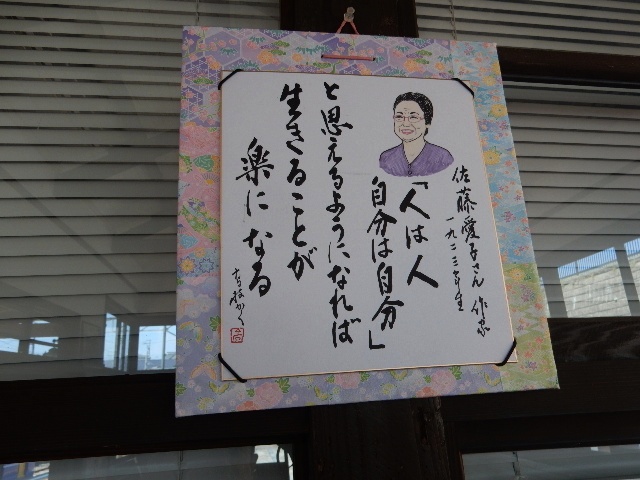 佐藤愛子さん 作家
一九二三年生
「人は人
自分は自分」
と思えるようになれば
生きることが
楽になる